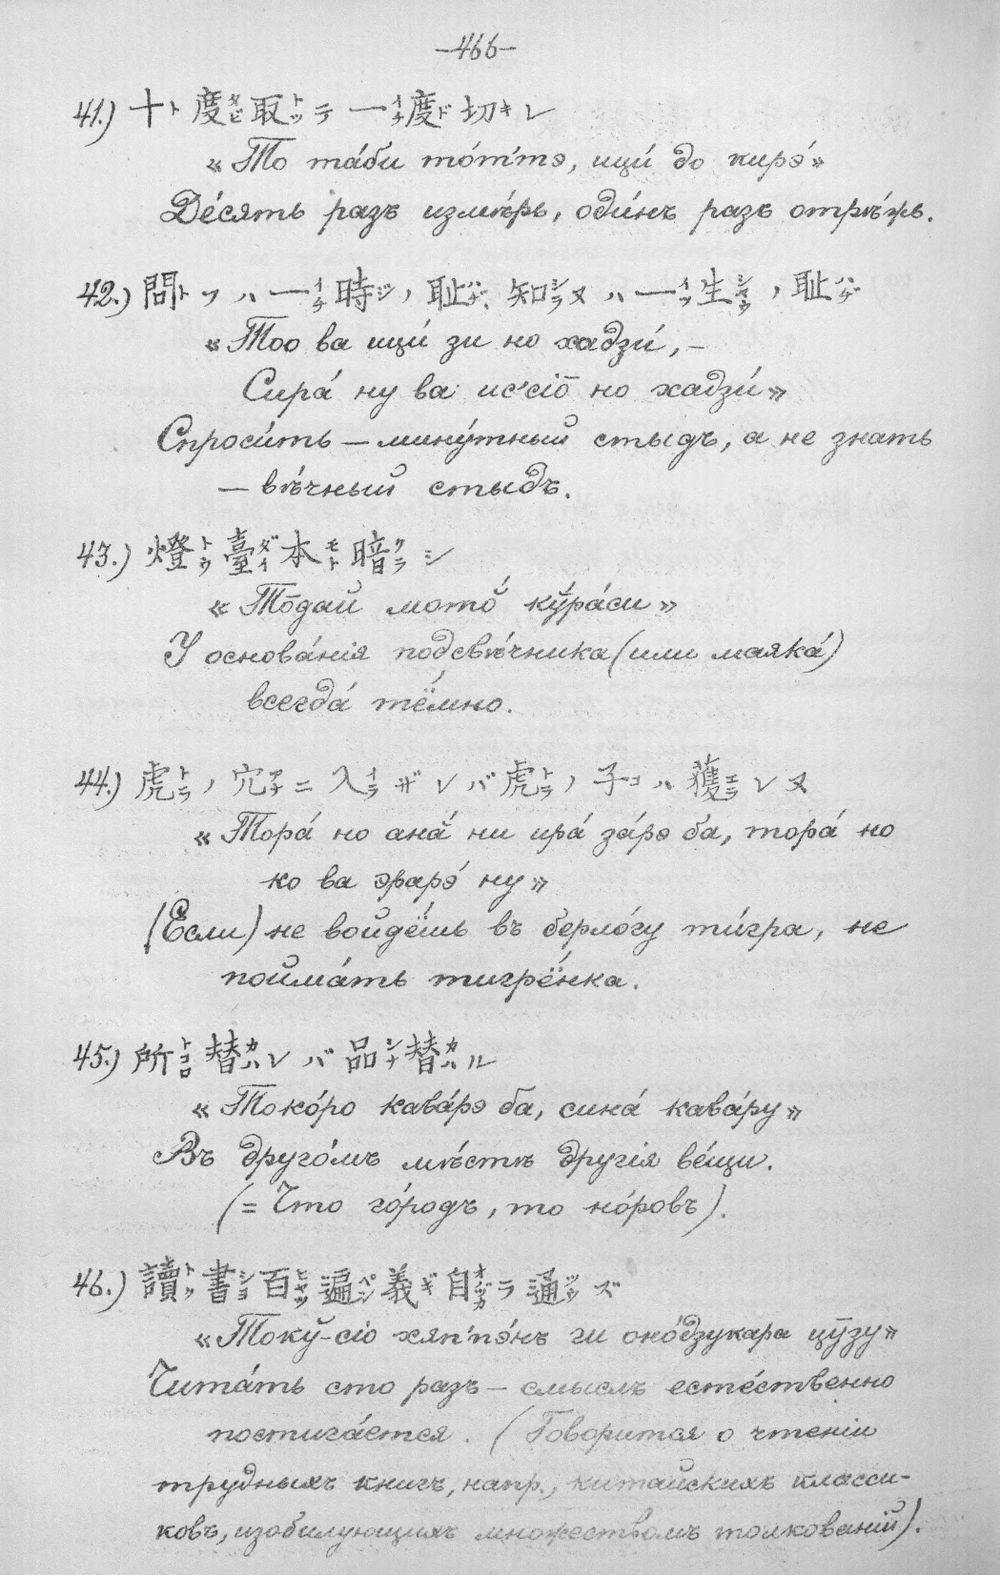 —466—
41.) 十ト度タビ取トッテ一イチ度ド切キレ
«То та́би то́т'тэ, ици́ до кирэ́»
Де́сять разъ измѣ́рь, оди́нъ разъ отрѣ́жь.
42.) 問トフハ一イチ時ジノ耻ハヂ、知シラヌハ一イッ生シヤウノ耻ハヂ
«Тоо ва ици́ зи но хадзи́, —
Сира́ ну ва ис'сіо̄ но хадзи́»
Спроси́ть — мину́тный стыдъ, а не знать
— вѣ́чный стыдъ.
43.) 燈トウ臺ダイ本モト暗クラシ
«То̄дай мото̆́ кўра́си»
У основа́нія подсвѣ́чника (или маяка́)
всегда́ тё́мно.
44.) 虎トラノ穴アナニ入イラザレバ虎トラノ子コハ獲エラレヌ
«Тора́ но анӑ́ ни ира́ за́рэ ба, тора́ но
ко ва эрарэ́ ну»
(Если) не войдё́шь въ берло́гу ти́гра, не
пойма́ть тигрё́нка.
45.) 所トコロ替カハレバ品シナ替カハル
«Токо́ро кава́рэ ба, сина́ кава́ру»
Въ друго́мъ мѣ́стѣ другія ве́щи.
(= Что го́родъ, то но́ровъ).
46.) 讀トク書シヨ百ヒヤッ遍ペン義ギ自オノヅカラ通ツウズ
«Токў-сіо хяп'пэ́нъ ги оно́дзукара цӯзу»
Чита́ть сто разъ — смыслъ есте́ственно
постига́ется. (Говорится о чтеніи
трудныхъ книгъ, напр., китайскихъ класси-
ковъ, изобилующихъ множествомъ толкованій).